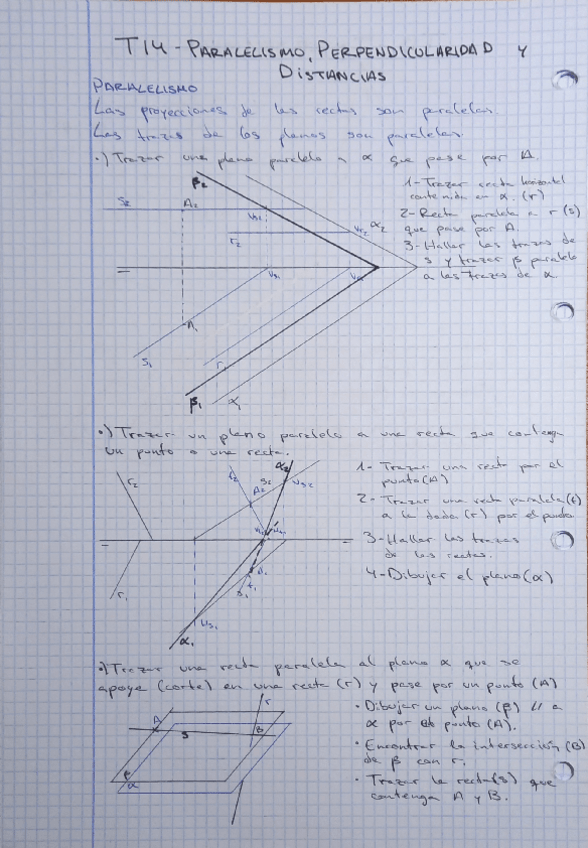 T14 - PARALELISMO, PERPENDICULARIDAD Y
DISTANCIAS
PARALELISMO
Las proyecciones de las rectas son paralelas.
Las trazas de los planos son paralelas.
·) Trazar una plano paralelo a α que pase por A.
1- Trazar recta horizontal
contenida en α. (r)
2- Recta paralela a r (s)
que pase por A.
3- Hallar las trazas de
s y trazar β paralelo
a las trazas de α.
β₂
S₂
A₂
α₂
r₂
A₁
S₁
r₁
β₁
α₁
·) Trazar un plano paralelo a una recta que contenga
un punto o una recta.
1- Trazar una recta por el
punto (A)
2- Trazar una recta paralela (t)
a la dada (r) por el punto
3- Hallar las trazas
de las rectas.
4- Dibujar el plano (α)
r₂
α₂
S₂
A₂
r₁
α₁
·) Trazar una recta paralela al plano α que se
apoye (corte) en una recta (r) y pase por un punto (A)
· Dibujar un plano (β) // a
α por el punto (A).
· Encontrar la intersección (B)
de β con r.
· Trazar la recta (s) que
contenga A y B.
r
A
S
B
β
α